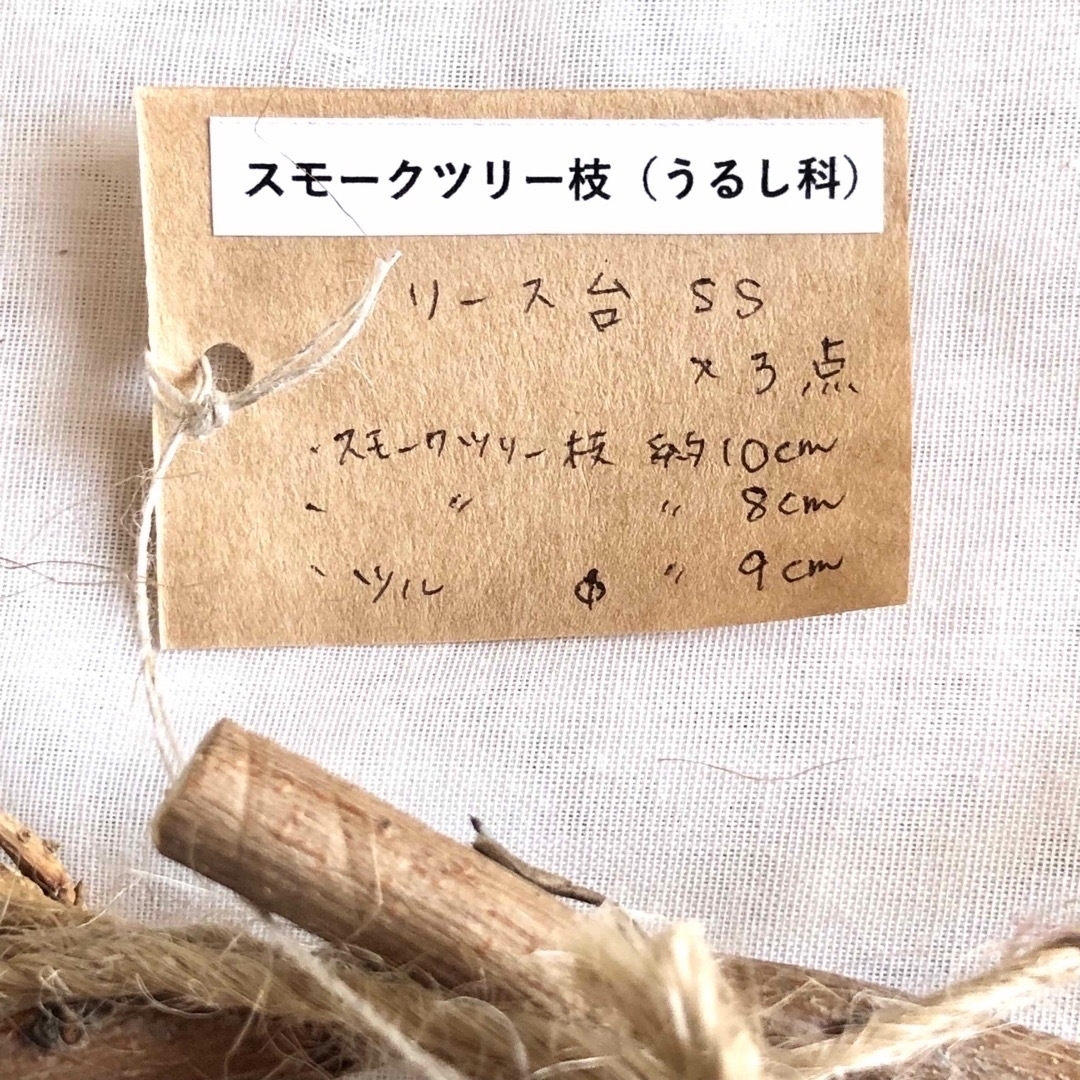 スモークツリー枝（うるし科）
リース台 SS
×3点
・スモークツリー枝 約10cm
・ 〃 〃 8cm
・ツル φ 〃 9cm